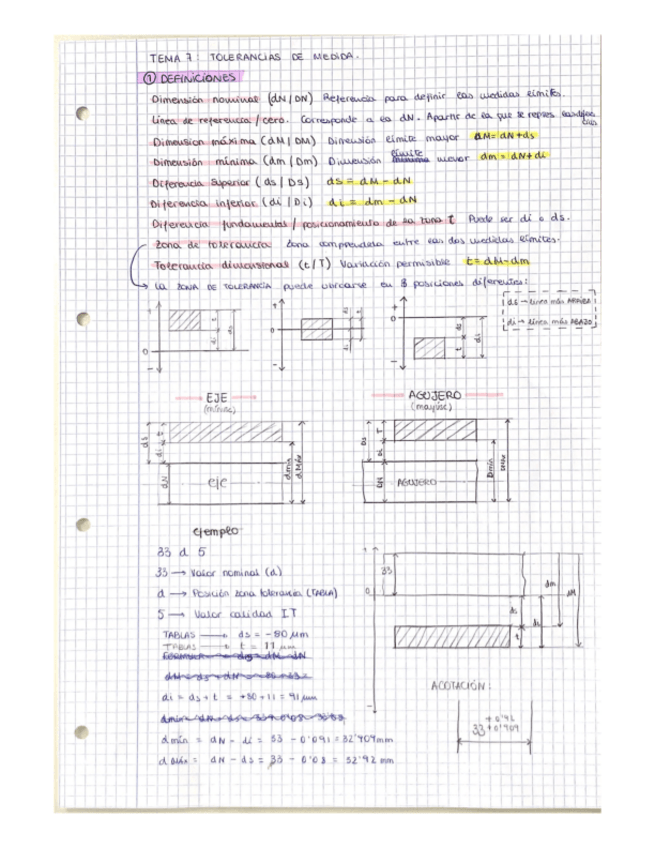 TEMA 7: TOLERANCIAS DE MEDIDA.
① DEFINICIONES
Dimensión nominal (dN/DN) Referencia para definir las medidas límites.
Línea de referencia/cero. Corresponde a la dN. A partir de la que se repres. las
Dimensión máxima (dM/DM) Dimensión límite mayor dM = dN+ds
Dimensión mínima (dm/Dm) Dimensión límite menor dm = dN+di
Diferencia superior (ds/Ds) ds = dM - dN
Diferencia inferior (di/Di) di = dm - dN
Diferencia fundamental/posicionamiento de la zona t Puede ser di o ds.
Zona de tolerancia Zona comprendida entre las dos medidas límites.
Tolerancia dimensional (t/T) Variación permisible t = dM-dm
La ZONA DE TOLERANCIA puede ubicarse en 3 posiciones diferentes:
ds → línea más ARRIBA
di → línea más ABAJO
+ 0 - t di ds
+ 0 - t
+ 0 - ds t di
EJE
(minúsc)
AGUJERO
(mayúsc)
ds di t dN eje dmín dMáx
Ds T di DN AGUJERO Dmín
ejemplo
33 d 5
33 → Valor nominal (d)
d → Posición zona tolerancia (TABLA)
5 → Valor calidad IT
TABLAS → ds = -80 µm
TABLAS → t = 11 µm
di = ds + t = +80 + 11 = 91 µm
d mín = dN - di = 33 - 0'091 = 32'909 mm
d máx = dN - ds = 33 - 0'08 = 32'92 mm
33 0 - ds t di dm dM
ACOTACIÓN:
33